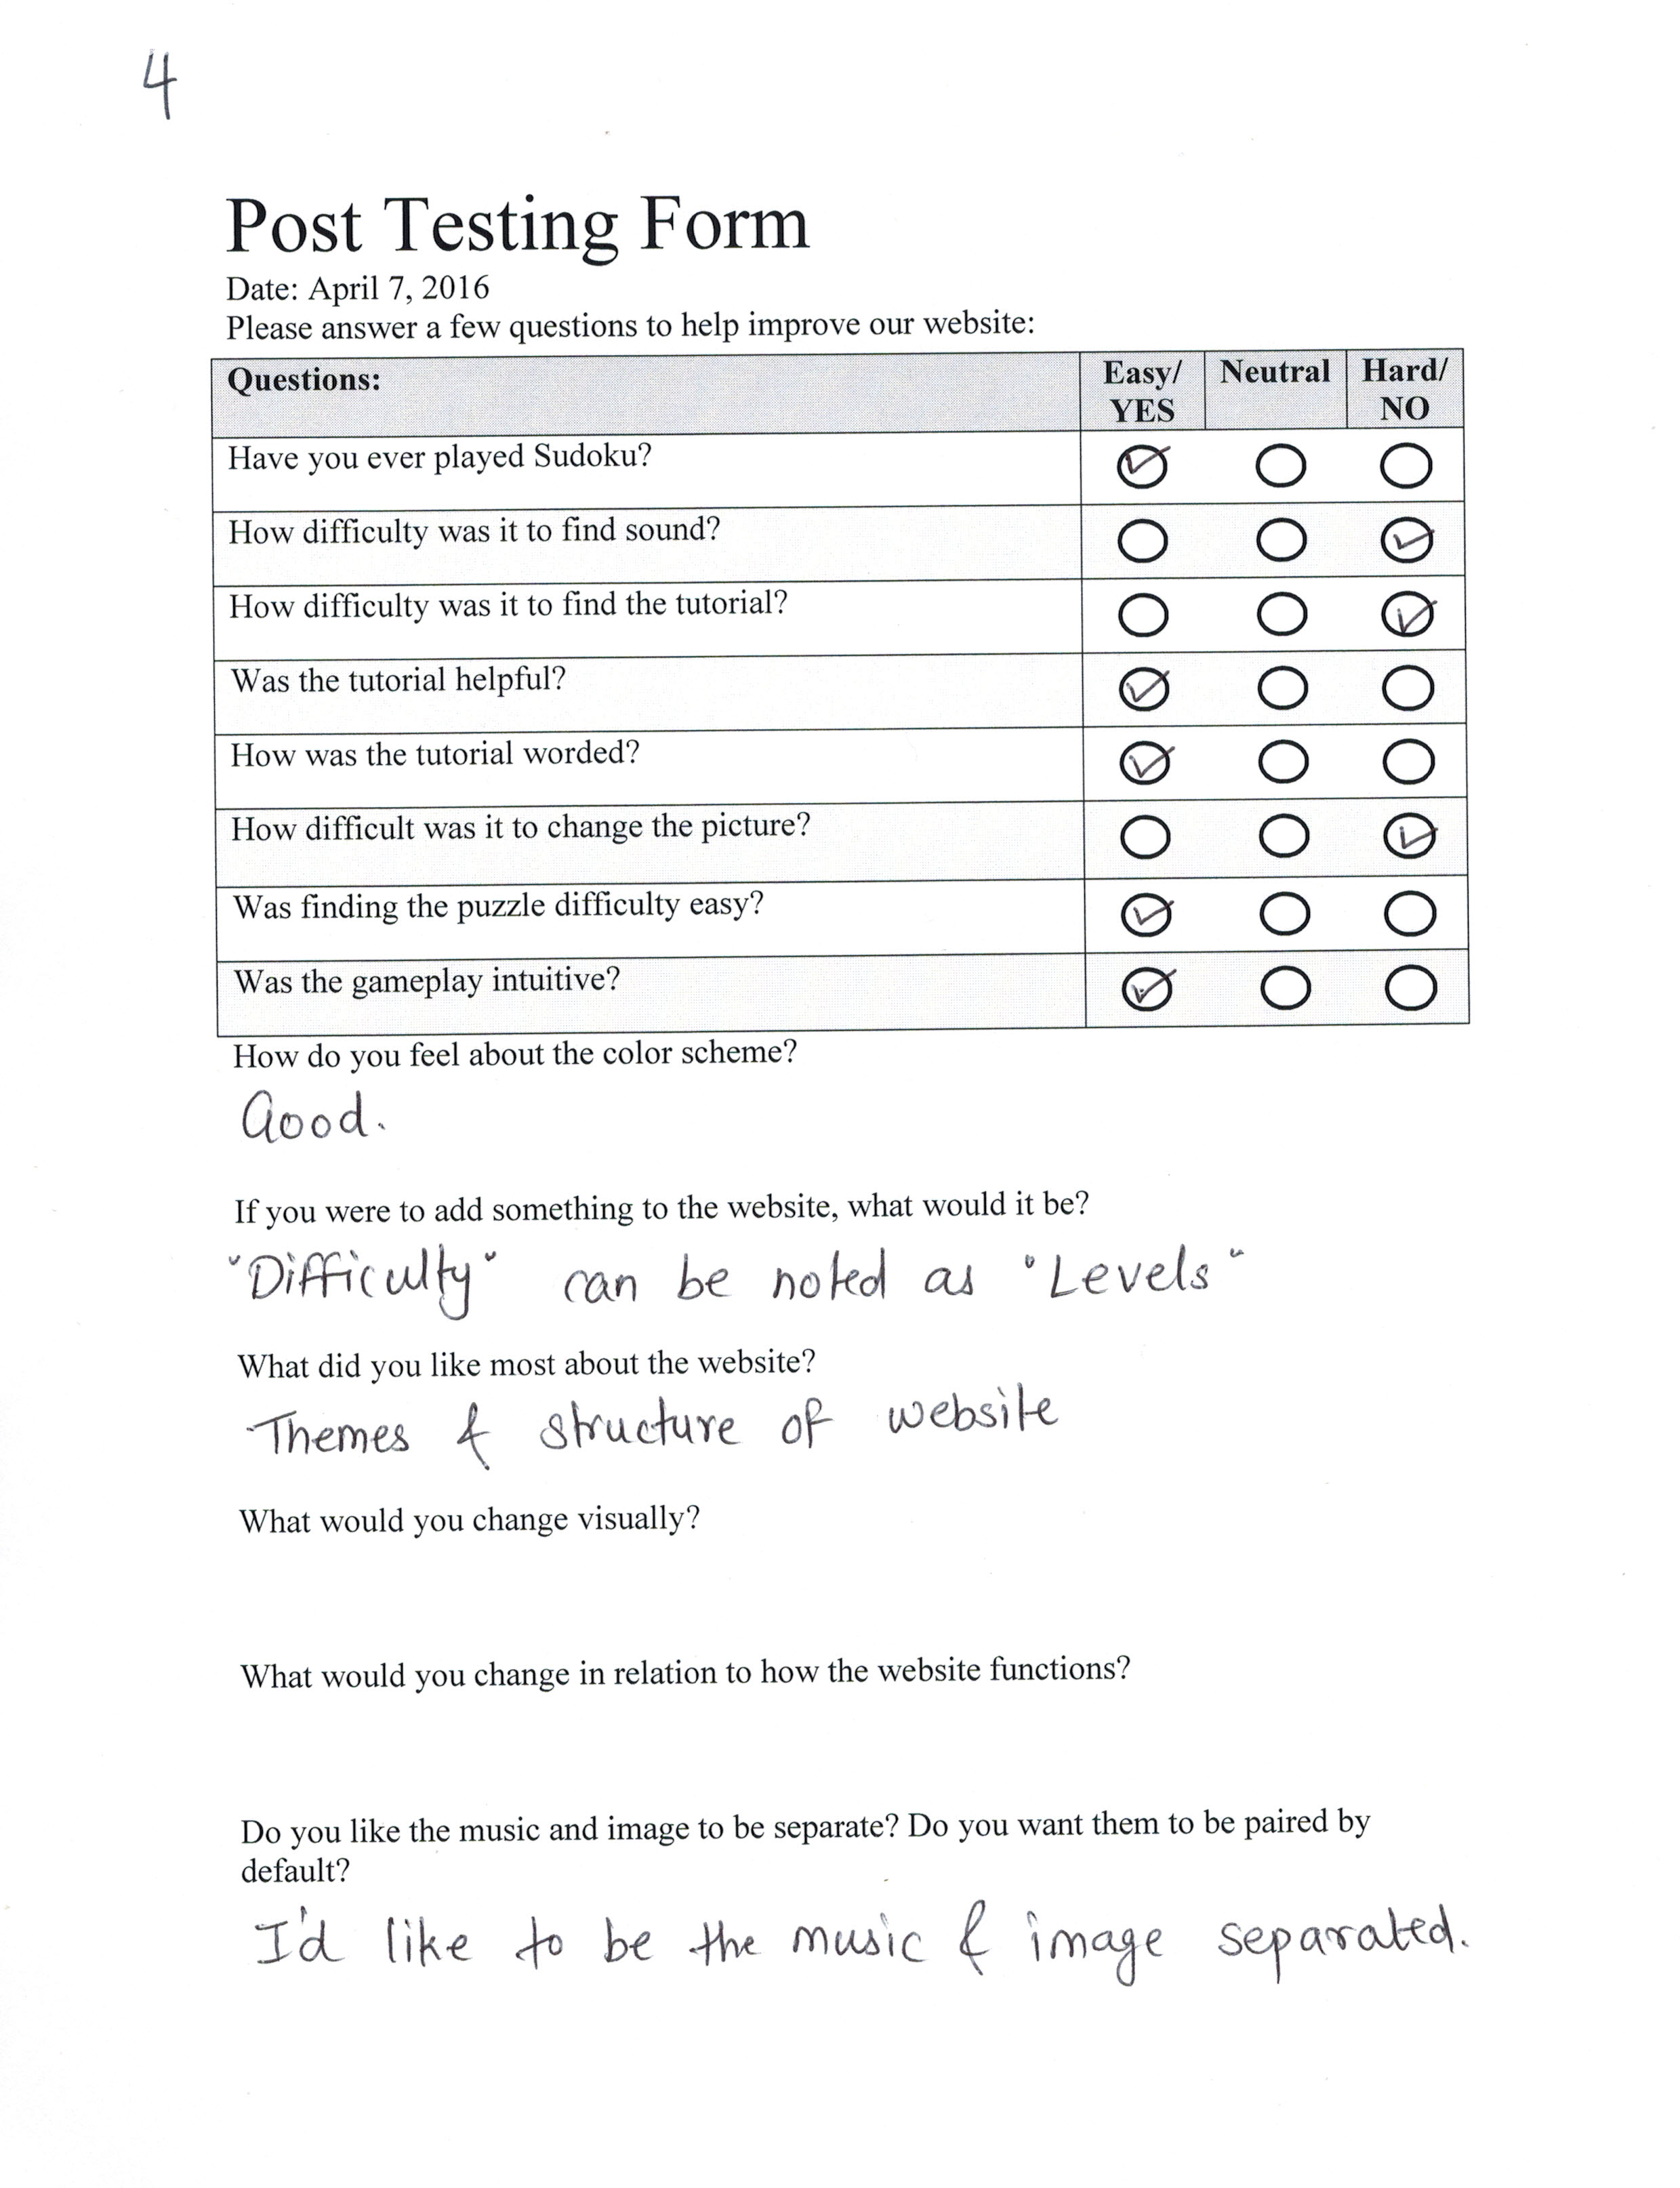 4
Post Testing Form
Date: April 7, 2016
Please answer a few questions to help improve our website:
Questions: Easy/ Neutral Hard/
YES NO
Have you ever played Sudoku?
How difficulty was it to find sound?
How difficulty was it to find the tutorial?
Was the tutorial helpful?
How was the tutorial worded?
How difficult was it to change the picture?
Was finding the puzzle difficulty easy?
Was the gameplay intuitive?
How do you feel about the color scheme?
Good.
If you were to add something to the website, what would it be?
"Difficulty" can be noted as "Levels"
What did you like most about the website?
Themes & structure of website
What would you change visually?
What would you change in relation to how the website functions?
Do you like the music and image to be separate? Do you want them to be paired by
default?
I'd like to be the music & image separated.